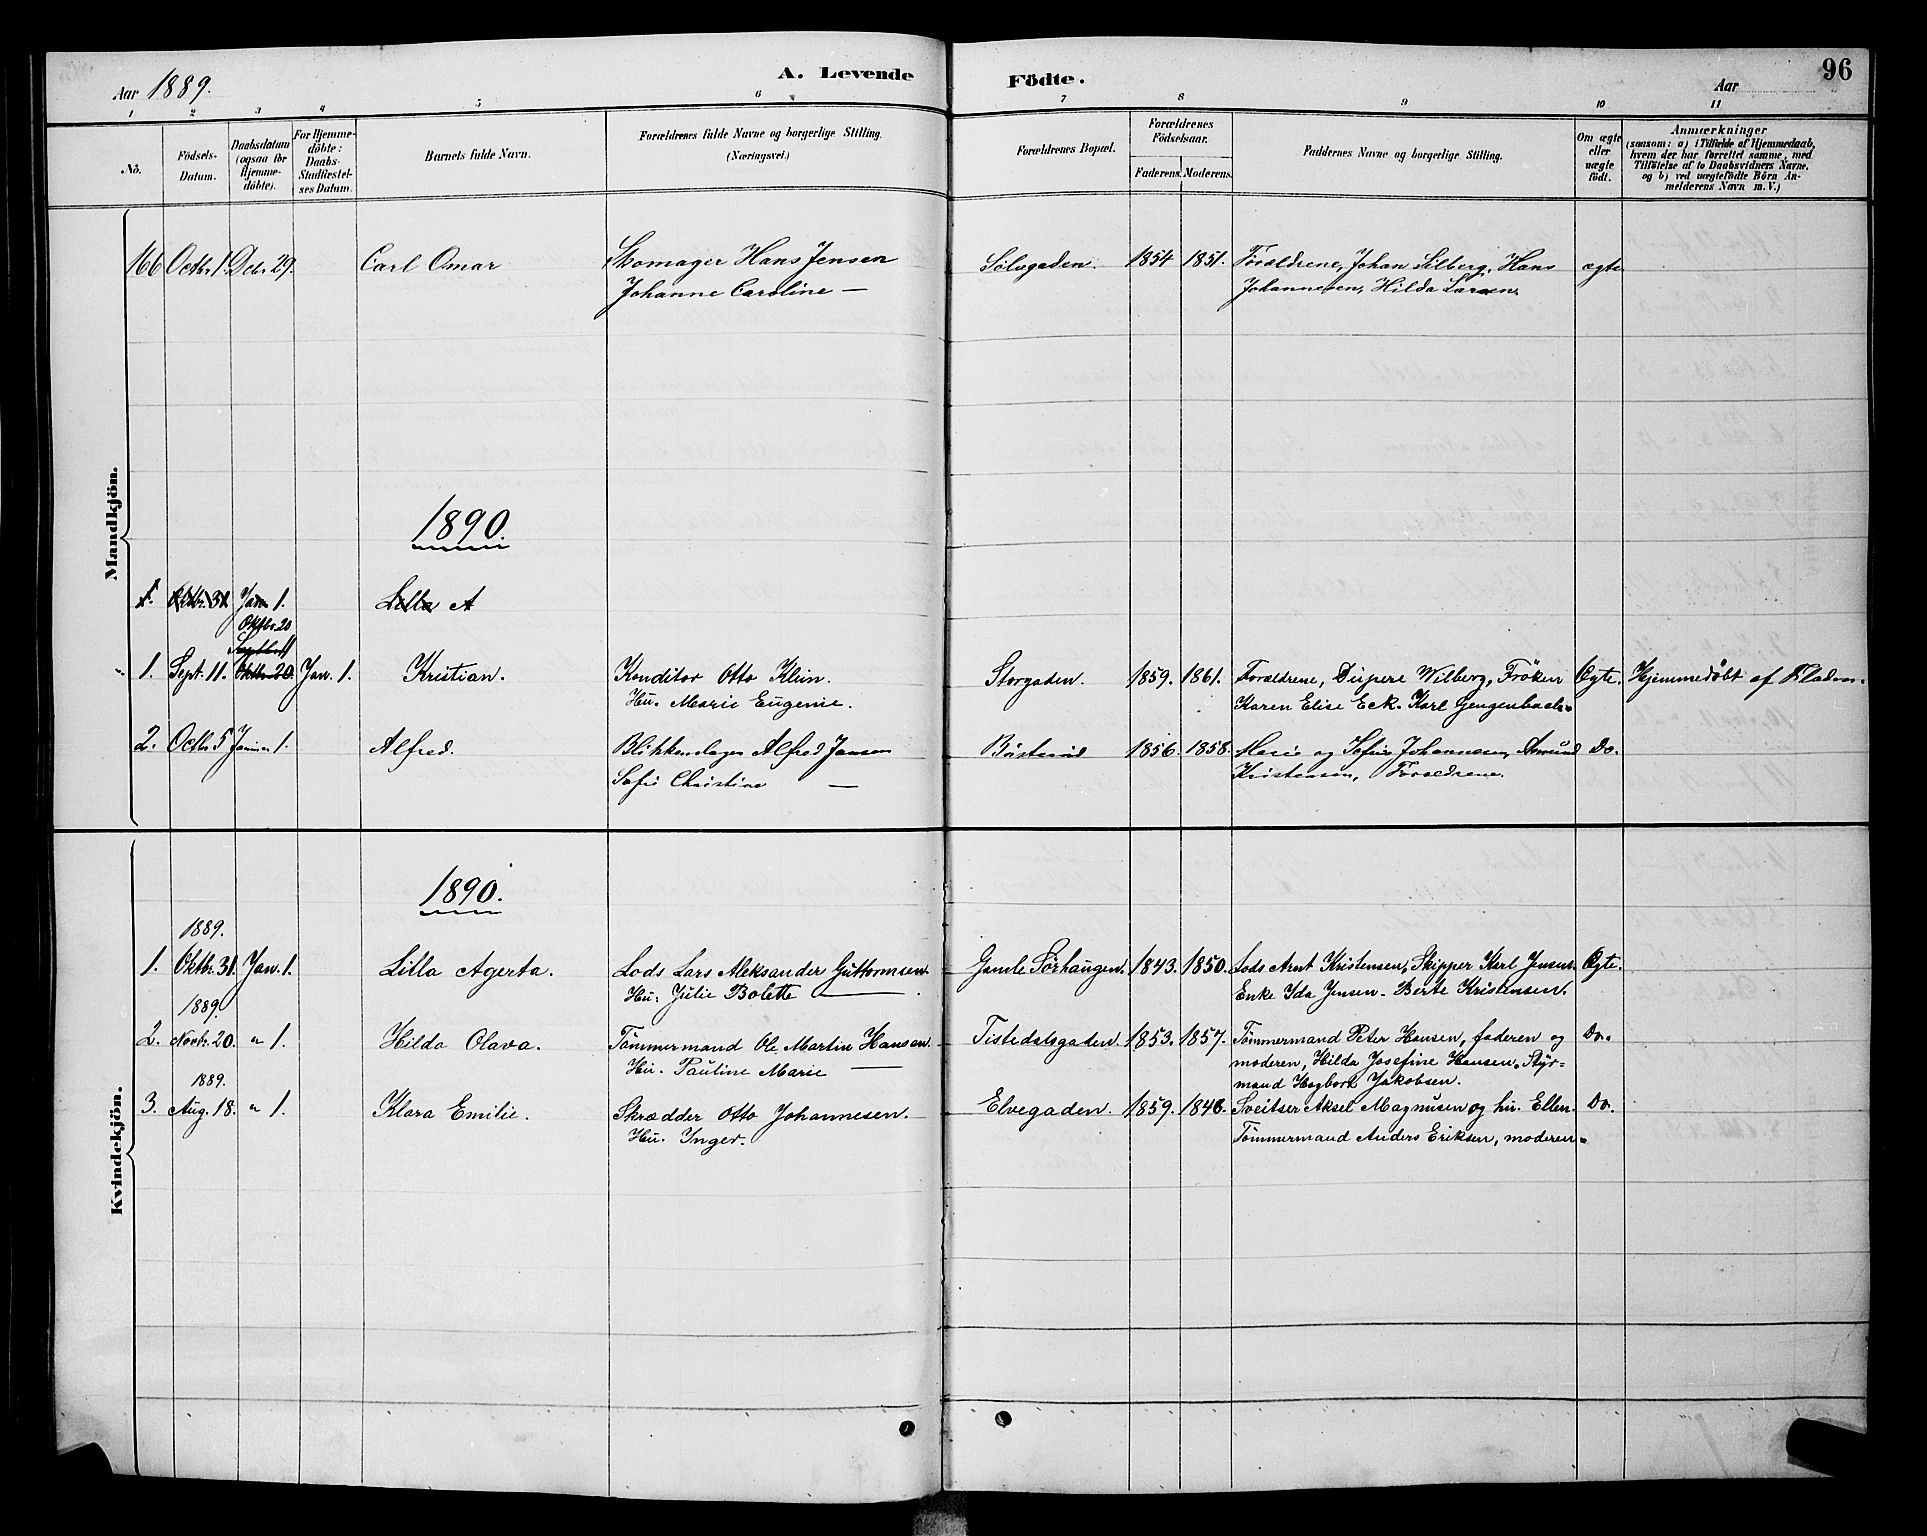 Aar 1889.
A. Levende
Födte.
Aar
96
1 2 3 4 5 6 7 8 9 10 11
No.
Födsels-Datum.
Daabsdatum (ogsaa for Hjemme-döbte).
For Hjemme-döbte: Daabs-Stadfæstel-ses Datum.
Barnets fulde Navn.
Forældrenes fulde Navne og borgerlige Stilling.
(Næringsvei.)
Forældrenes Bopæl.
Forældrenes Födselsaar.
Faderens. Moderens.
Faddernes Navne og borgerlige Stilling.
Om ægte eller uægte födt.
Anmærkninger
(saasom: a) i Tilfælde af Hjemmedaab, hvem der har forrettet samme, med Tilföielse af to Daabsvidners Navne, og b) ved uægtefödte Börn An-melderens Navn m. V.)
Mandkjön.
166 Octbr. 1. Dcbr. 29. Carl Omar Skomager Hans Jensen Sølvgaden. 1854 1851. Forældrene, Johan Silberg, Hans ægte
Johanne Caroline — Johannesen, Hilda Larsen.
1890.
1. Oktbr. 31. Jan 1. Lilla A
Oktbr 20
Septbr 11
1. Sept. 11. Oktbr. 20. Jan. 1. Kristian. Konditor Otto Klein. Storgaden. 1859. 1861. Forældrene, Dupere Wilberg, Frøken Ægte. Hjemmedøbt af
Hu. Marie Eugenie. Karen Elise Eck. Karl Gengenbach.
2. Octbr 5 Januar 1. Alfred. Blikkenslager Alfred Jensen 1856. 1858. Marie og Sofie Johannesen, Amund Do.
Sofie Christine — Kristensen, Forældrene.
Kvindekjön.
1890.
1889.
1. Oktbr. 31. Jan. 1. Lilla Agerta. Lods Lars Aleksander Guttormsen. Gamle Sørhaugen. 1843. 1850. Lods Arnt Kristensen, Skipper Karl Jensen. Ægte.
Hu. Julie Bolette — Enke Ida Jensen. Berte Kristensen.
1889.
2. Novbr. 20. " 1. Hilda Olava. Tømmermand Ole Martin Hansen. Tistedalsgaden. 1853. 1857. Tømmermand Peter Hansen, faderen og Do.
Hu. Pauline Marie — moderen, Hilda Josefine Hansen. Styr-
mand Hagbort Jakobsen.
1889.
3. Aug. 18. " 1. Klara Emilie. Skrædder Otto Johannesen. Elvegaden. 1859. 1846. Sveitser Aksel Magnusen og hu. Ellen. Do.
Hu. Inger. Tømmermand Anders Eriksen, moderen.